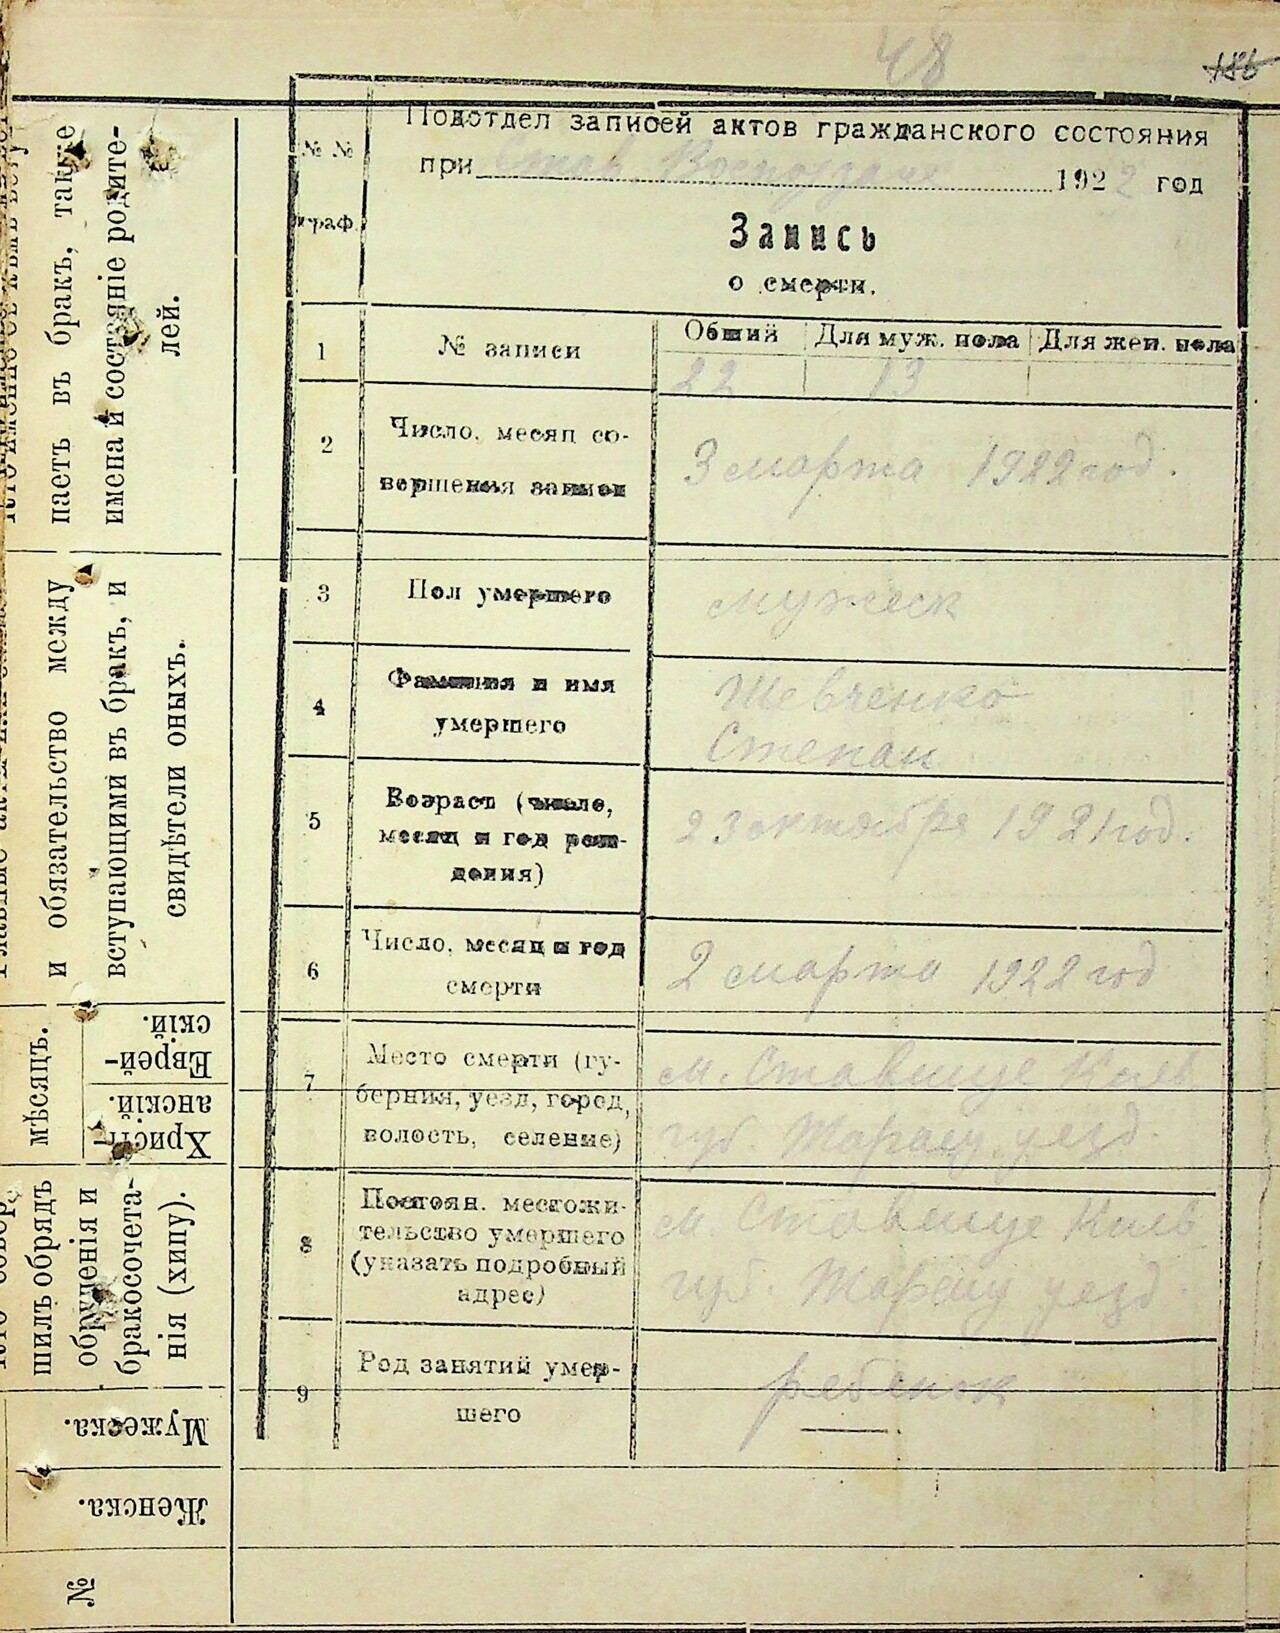 48
186
Подотдел записей актов гражданского состояния
при Став. 1922 год
№ №
граф
Запись
о смерти.
1
№ записи
Общий
Для муж. пола
Для жен. пола
22
13
2
Число, месяц со-
вершения записи
3 марта 1922 год.
3
Пол умершего
мужеск
4
Фамилия и имя
умершего
Шевченко
Степан
5
Возраст (число,
месяц и год рож-
дения)
23 октября 1921 год.
6
Число, месяц и год
смерти
2 марта 1922 год
7
Место смерти (гу-
берния, уезд, город,
волость, селение)
м. Ставище Киев
губ. Таращ. уезд.
8
Постоян. местожи-
тельство умершего
(указать подробный
адрес)
м. Ставище Киев
губ. Таращ уезд.
9
Род занятий умер-
шего
ребенок
паетъ въ бракъ, также
имена и состояніе родите-
лей.
и обязательство между
вступающими въ бракъ, и
свидѣтели оныхъ.
мѣсяцъ.
Еврей-
скій.
Христі-
анскій.
шилъ обрядъ
обрученія и
бракосочета-
нія (хипу).
Мужеска.
Женска.
№